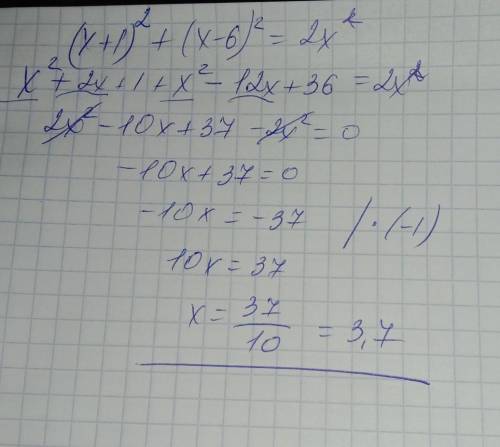 (x+1)² + (x-6)² = 2x²
x² + 2x + 1 + x² - 12x + 36 = 2x²
2x² - 10x + 37 - 2x² = 0
-10x + 37 = 0
-10x = -37 / · (-1)
10x = 37
x = 37/10 = 3,7